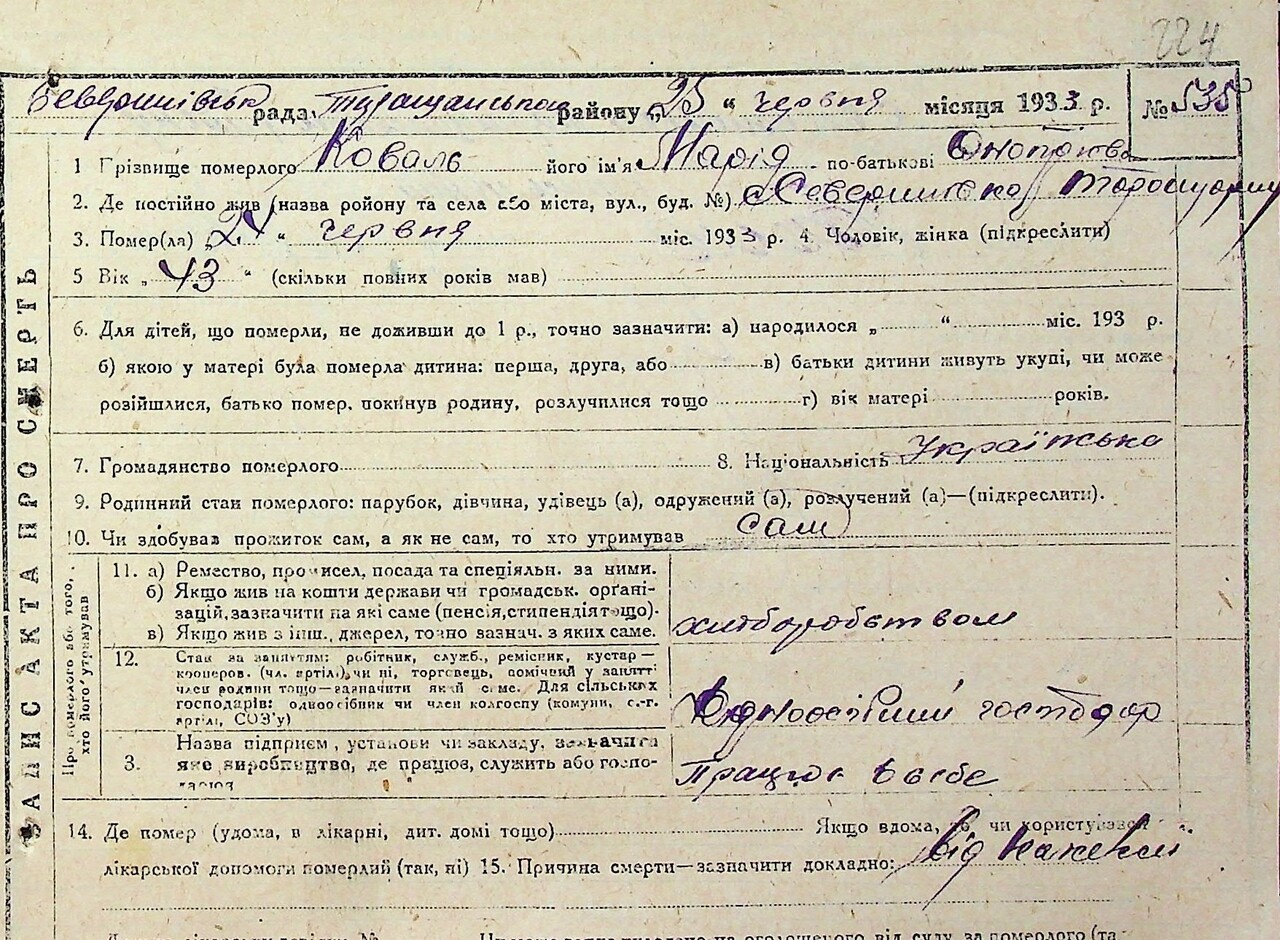 224
рада, районy „25 “ червня місяця 1933 р. № 535
1 Грізвище померлого Коваль його ім'я Марія по-батькові
2. Де постійно жив (назва ройону та села або міста, вул., буд. №)
3. Помер(ла) „ “ червня міс. 1933 р. 4. Чоловік, жінка (підкреслити)
5 Вік „ 43 “ (скільки повних років мав)
6. Для дітей, що померли, не доживши до 1 р., точно зазначити: а) народилося „ “ міс. 193 р.
б) якою у матері була померла дитина: перша, друга, або в) батьки дитини живуть укупі, чи може
розійшлися, батько помер, покинув родину, розлучилися тощо г) вік матері років.
7. Громадянство померлого 8. Національність Українська
9. Родинний стан померлого: парубок, дівчина, удівець (а), одружений (а), розлучений (а)—(підкреслити).
10. Чи здобував прожиток сам, а як не сам, то хто утримував сам
ЗАПИС АКТА ПРО СМЕРТЬ
Про померлого або того, хто його утримував
11. а) Ремество, промисел, посада та спеціяльн. за ними.
б) Якщо жив на кошти держави чи громадськ. органі-
зацій, зазначити на які саме (пенсія, стипендія тощо).
в) Якщо жив з інш. джерел, точно зазнач. з яких саме. хліборобством
12. Стан за заняттям: робітник, служб., ремісник, кустар—
кооперов. (чл. артілі), чи ні, торговець, помічний у занятті
член родини тощо—зазначити який саме. Для сільських
господарів: одноосібник чи член колгоспу (комуни, с.-г.
артілі, СОЗ'у) господар
3. Назва підприєм, установи чи закладу, зазначити
яке виробництво, де працює, служить або госпо-
Працює в себе
14. Де помер (удома, в лікарні, дит. домі тощо) Якщо вдома, чи користувався
лікарської допомоги померлий (так, ні) 15. Причина смерти—зазначити докладно: від